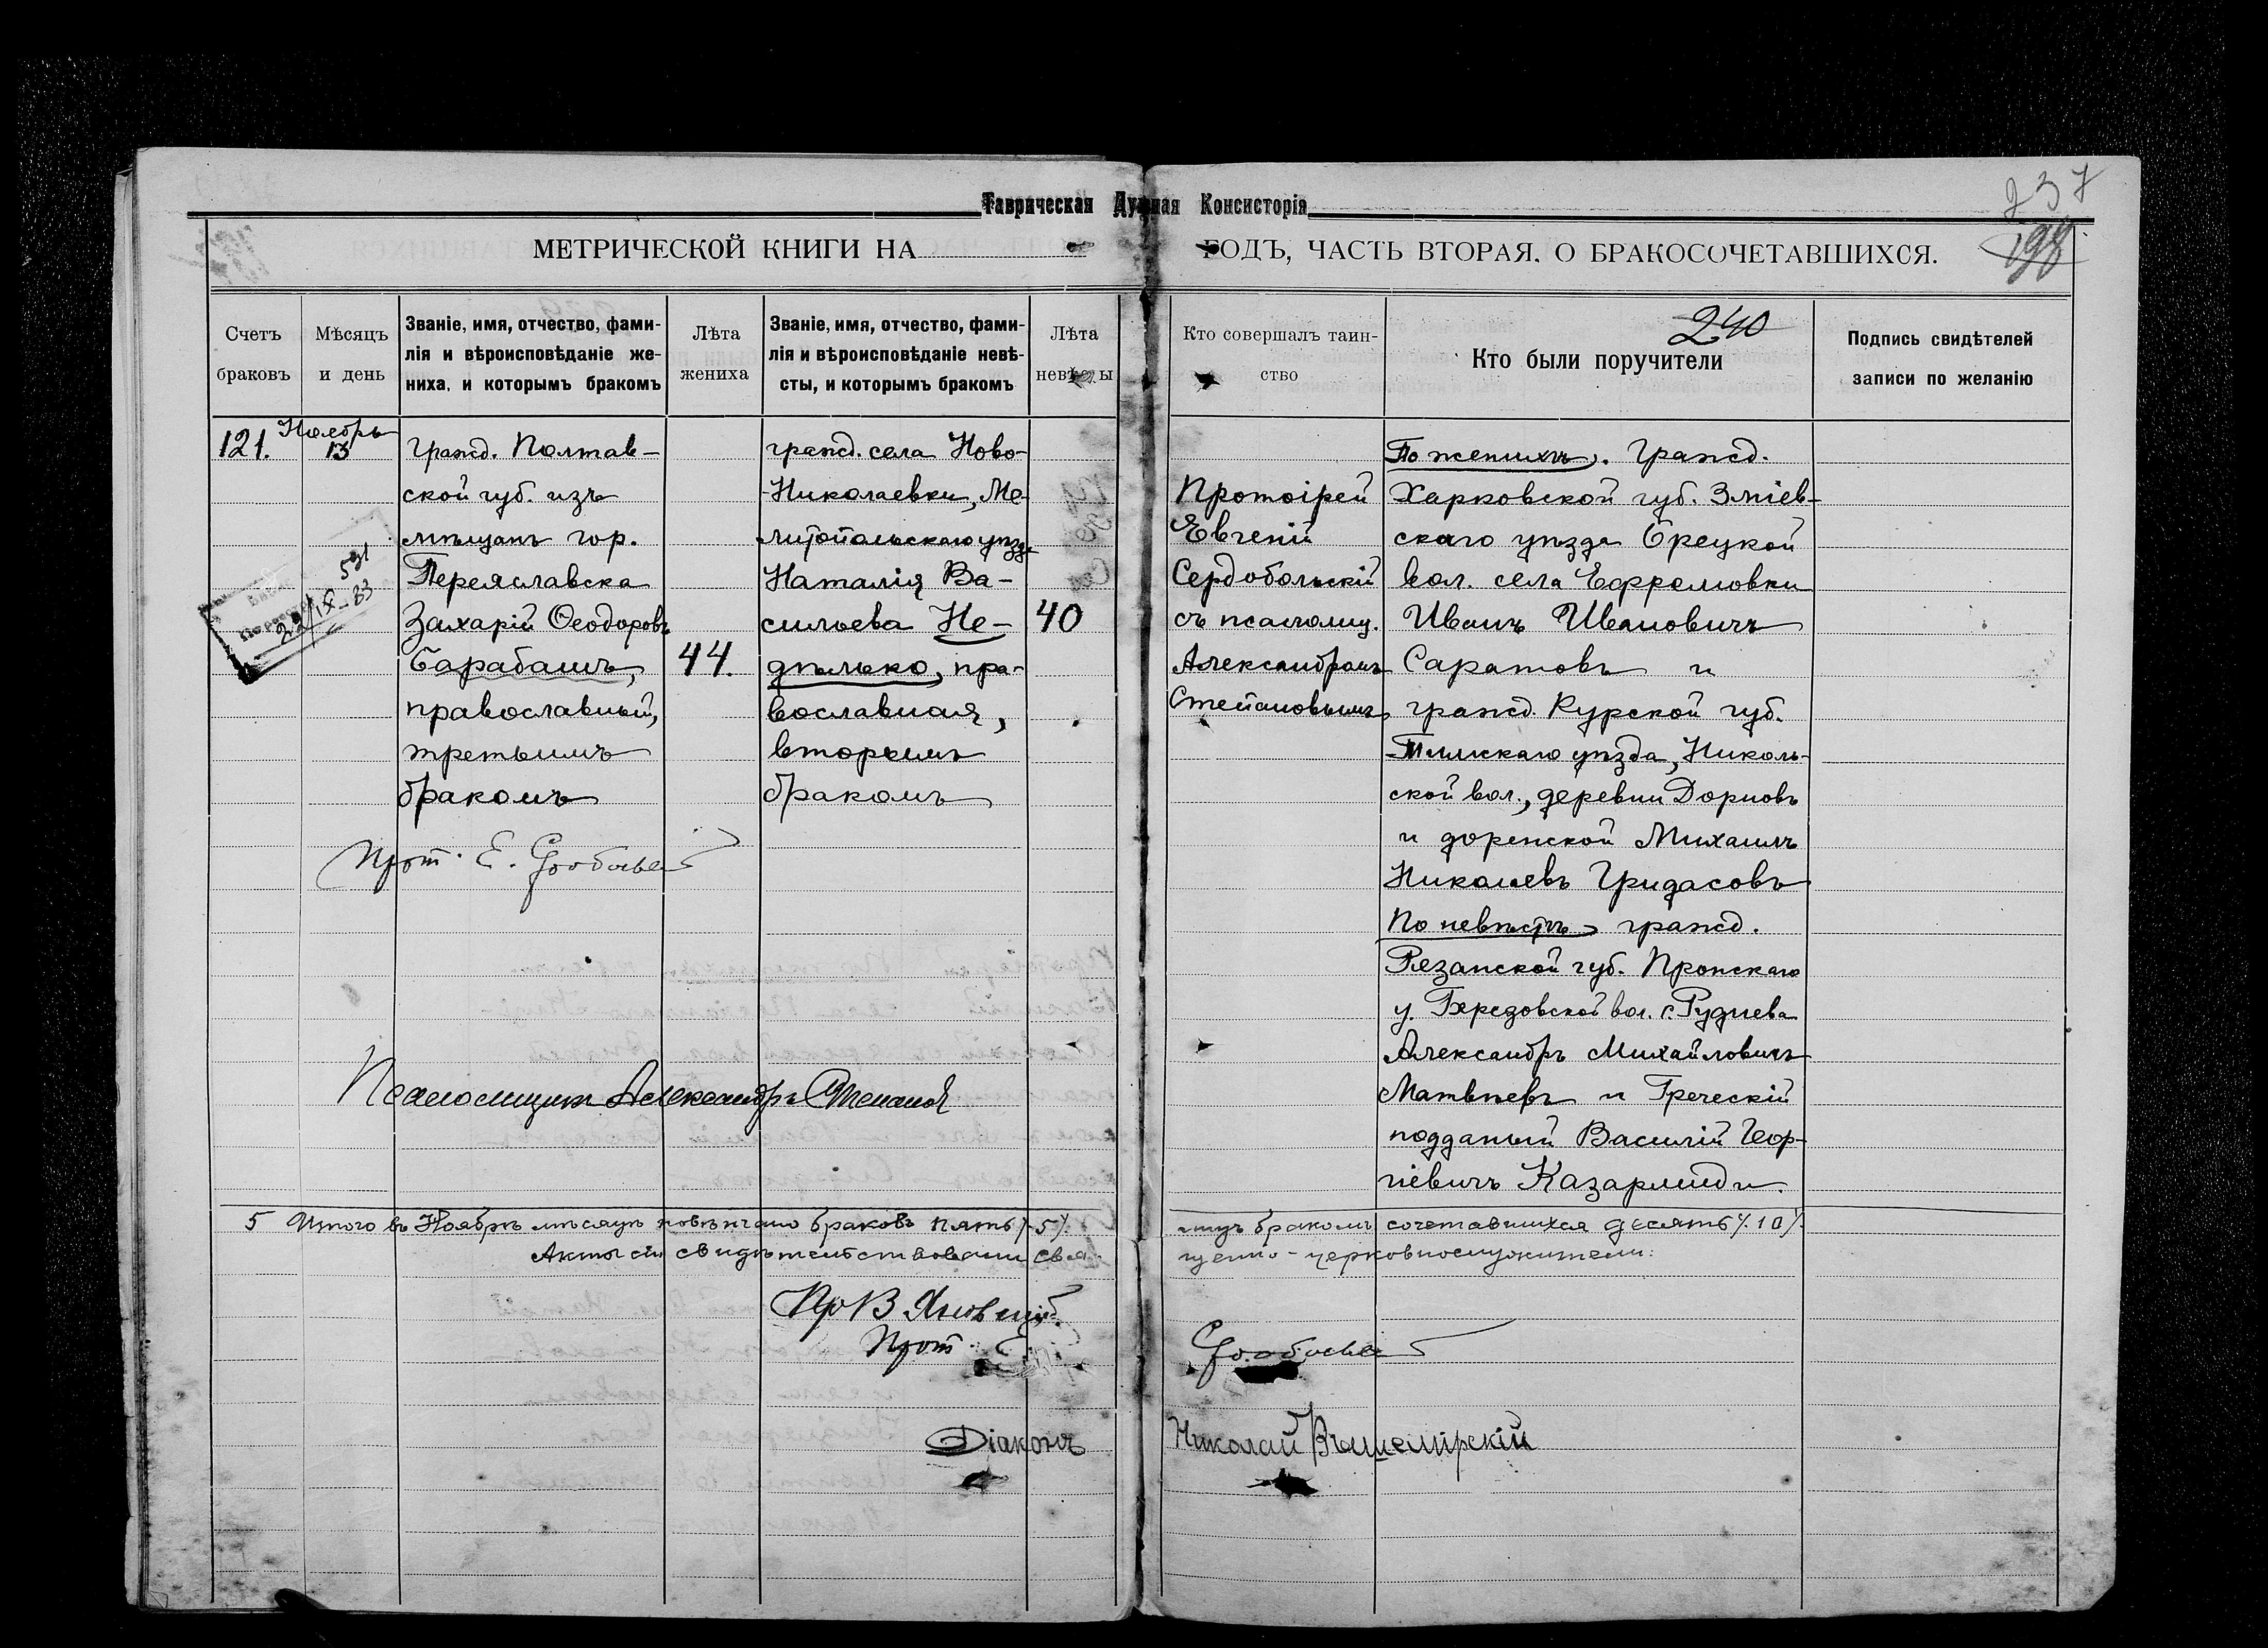 237
Таврическая Духовная Консисторія
198
МЕТРИЧЕСКОЙ КНИГИ НА ГОДЪ, ЧАСТЬ ВТОРАЯ, О БРАКОСОЧЕТАВШИХСЯ.
Счетъ
браковъ
Мѣсяцъ
и день
Званіе, имя, отчество, фами-
лія и вѣроисповѣданіе же-
ниха, и которымъ бракомъ
Лѣта
жениха
Званіе, имя, отчество, фами-
лія и вѣроисповѣданіе невѣ-
сты, и которымъ бракомъ
Лѣта
невѣсты
Кто совершалъ таин-
ство
240
Кто были поручители
Подпись свидѣтелей
записи по желанію
121.
Ноябрь
13
Гражд. Полтав-
ской губ. изъ
мѣщанъ гор.
Переяславска
Захарій Ѳеодоровъ
Барабашъ,
православный,
третьимъ
бракомъ
44.
гражд. села Ново-
Николаевки, Ме-
литопольскаго уѣзда
Наталія Ва-
сильева Не-
дѣлько, пра-
вославная,
вторымъ
бракомъ
40
Протоірей
Евгеній
Сердобольскій
съ псаломщ.
Александромъ
Степановымъ
По женихѣ. Гражд.
Харковской губ. Зміев-
скаго уѣзда Орецкой
вол. села Ефремовки
Иванъ Ивановичъ
Саратовъ и
гражд. Курской губ.
Тимскаго уѣзда, Николь-
ской вол., деревни Дорновъ
и доренской Михаилъ
Николаевъ Гридасовъ
По невѣстѣ, гражд.
Рязанской губ. Пронскаго
у. Березовской вол. с. Руднева
Александръ Михайловичъ
Матвѣевъ и Греческій
подданый Василій Геор-
гіевичъ Казарлиди.
531
29/IX-83
Прот. Е. Сердобольск
Псаломщикъ Александръ Степановъ
5 Итого въ Ноябрѣ мѣсяцѣ повѣнчано браковъ пять /5/. лицъ бракомъ сочетавшихся десять /10/.
Акты сіи свидѣтельствовали свя-
щенно-церковнослужители:
Пр В Яновскій.
Прот. Е. Сердобольск
Діаконъ Николай